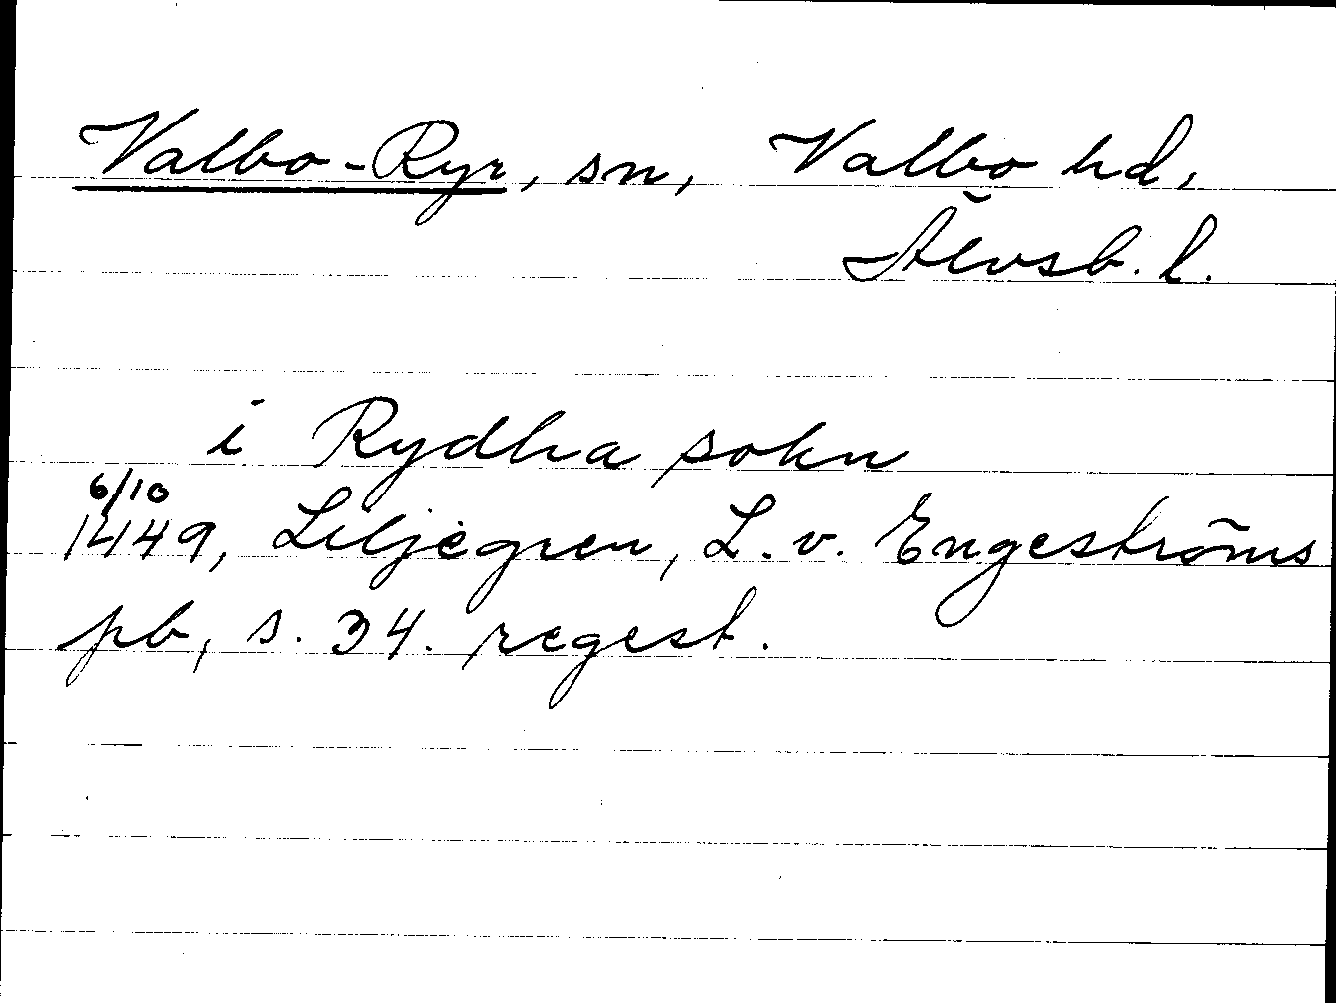 Valbo-Ryr, sn, Valbo hd,
Älvsb. l.
i Rydha sokn
6/10
1449, Liljegren, L. v. Engeströms
pb, s. 34. regest.